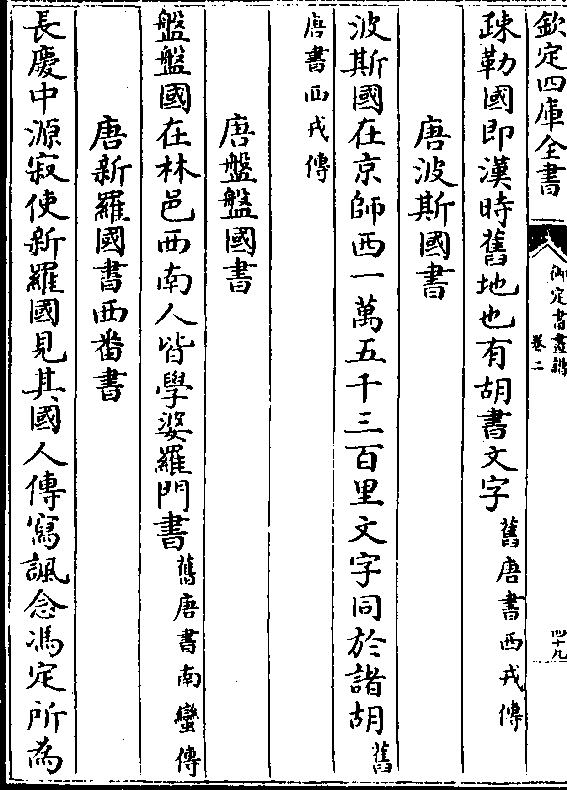 欽定四庫全書
御定書畫譜
卷二
四十九
疎勒國即漢時舊地也有胡書文字舊唐書西戎傳
唐波斯國書
波斯國在京師西一萬五千三百里文字同於諸胡舊
唐書西戎傳
唐盤盤國書
盤盤國在林邑西南人皆學婆羅門書舊唐書南蠻傳
唐新羅國書西番書
長慶中源寂使新羅國見其國人傳寫諷念馮定所為